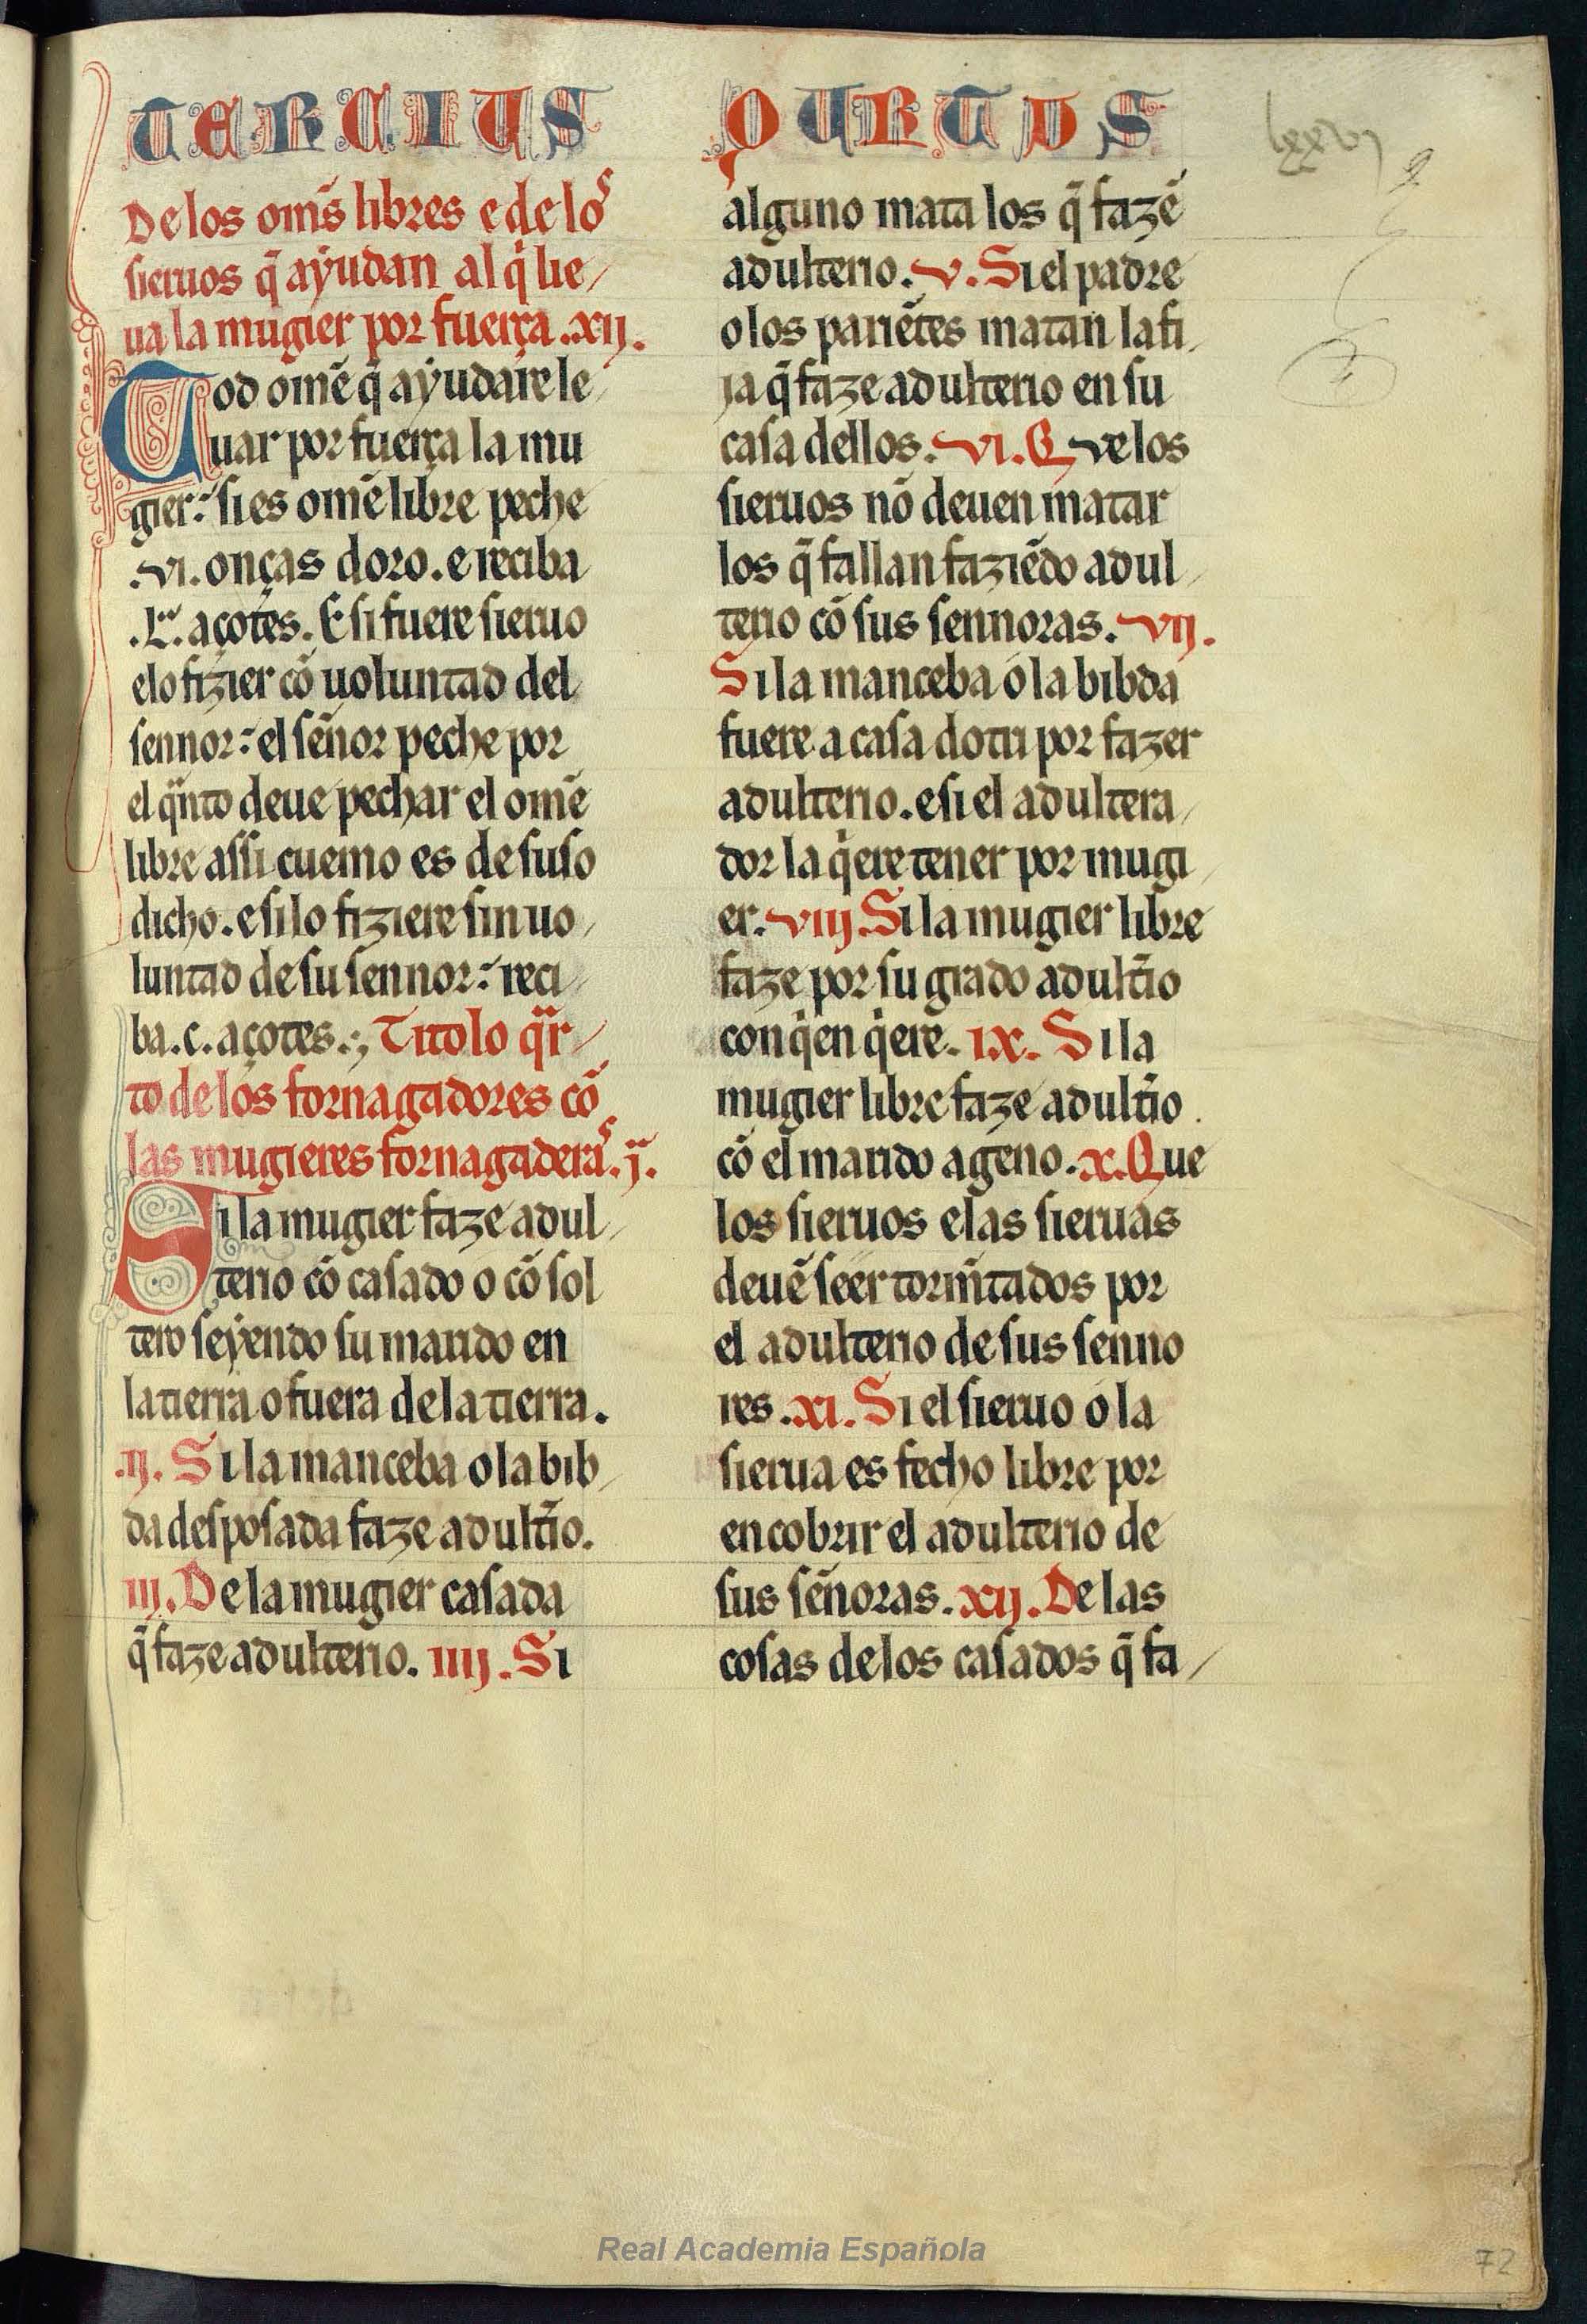 TERCIUS
De los om̃s libres e de los
sieruos q̃ ayudan al q̇ lie/
ua la mugier por fuerça .xij.
Tod omẽ q̃ ayudare le/
uar por fuerça la mu
gier: si es omẽ libre peche
.vi. onças doro. e reciba
.L. açotes. E si fuere sieruo
e lo fizier cõ uoluntad del
sennor: el señor peche por
el q̃nto deue pechar el omẽ
libre assi cuemo es de suso
dicho. e si lo fiziere sin uo/
luntad de su sennor: reci/
ba .c. açotes. Titolo qr̃/
to de los fornagadores cõ
las mugieres fornagaderas. j.
Si la mugier faze adul/
terio cõ casado o cõ sol
tero seyendo su marido en
la tierra o fuera de la tierra.
.ij. Si la manceba o la bib/
da desposada faze adult̃io.
iij. De la mugier casada
q̃ faze adulterio. iiij. Si
QURTUS
alguno mata los q̃ fazẽ
adulterio. v. Si el padre
o los pariẽtes matan la fi/
ja q̃ faze adulterio en su
casa dellos. vi. Que los
sieruos nõ deuen matar
los q̃ fallan faziẽdo adul/
terio cõ sus sennoras. vij.
Si la manceba o la bibda
fuere a casa dotri por fazer
adulterio. e si el adultera/
dor la q̇ere tener por mugi/
er. viij. Si la mugier libre
faze por su grado adult̃io
con q̇en q̇ere. ix. Si la
mugier libre faze adult̃io
cõ el marido ageno. x. Que
los sieruos e las sieruas
deuẽ seer torm̃tados por
el adulterio de sus senno
res. xi. Si el sieruo o la
sierua es fecho libre por
encobrir el adulterio de
sus señoras. xij. De las
cosas de los casados q̃ fa/
lxxvi
72
Real Academia Española